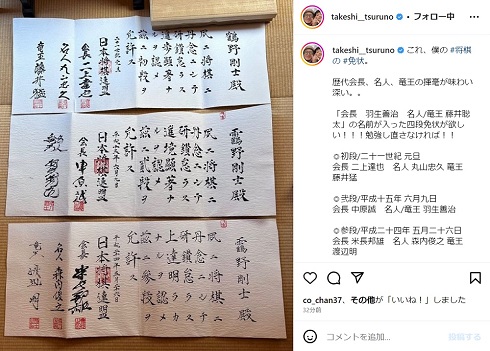 靏野剛士殿
夙ニ将棋ニ
丹念ニシテ
研鑽怠ラス
進歩顕著ナ
ルヲ認メ
茲ニ初段ヲ
允許ス
二十一世紀元旦
日本将棋連盟
会長 二上達也
名人 丸山忠久
竜王 藤井猛
靏野剛士殿
夙ニ将棋ニ
丹念ニシテ
研鑽怠ラス
進境顕著ナ
ルヲ認メ
茲ニ弐段ヲ
允許ス
平成十五年六月九日
日本将棋連盟
会長 中原誠
靏野剛士殿
夙ニ将棋ニ
丹念ニシテ
研鑽怠ラス
上達明ラカ
ナルヲ認メ
茲ニ参段ヲ
允許ス
平成二十四年五月二十六日
日本将棋連盟
会長 米長邦雄
名人 森内俊之
竜王 渡辺明
takeshi__tsuruno • フォロー中
takeshi__tsuruno これ、僕の #将棋
の #免状。
歴代会長、名人、竜王の揮毫が味わい
深い。。
「会長　羽生善治　名人/竜王 藤井聡
太」の名前が入った四段免状が欲
しい！！！勉強し直さなければ！！
☺初段/二十一世紀 元旦
会長 二上達也 名人 丸山忠久 竜王
藤井猛
☺弐段/平成十五年 六月九日
会長 中原誠　名人/竜王 羽生善治
☺参段/平成二十四年 五月二十六日
会長 米長邦雄 名人 森内俊之 竜王
渡辺明
co_chan37、その他が「いいね！」しました
32分前
コメントを追加...
投稿する